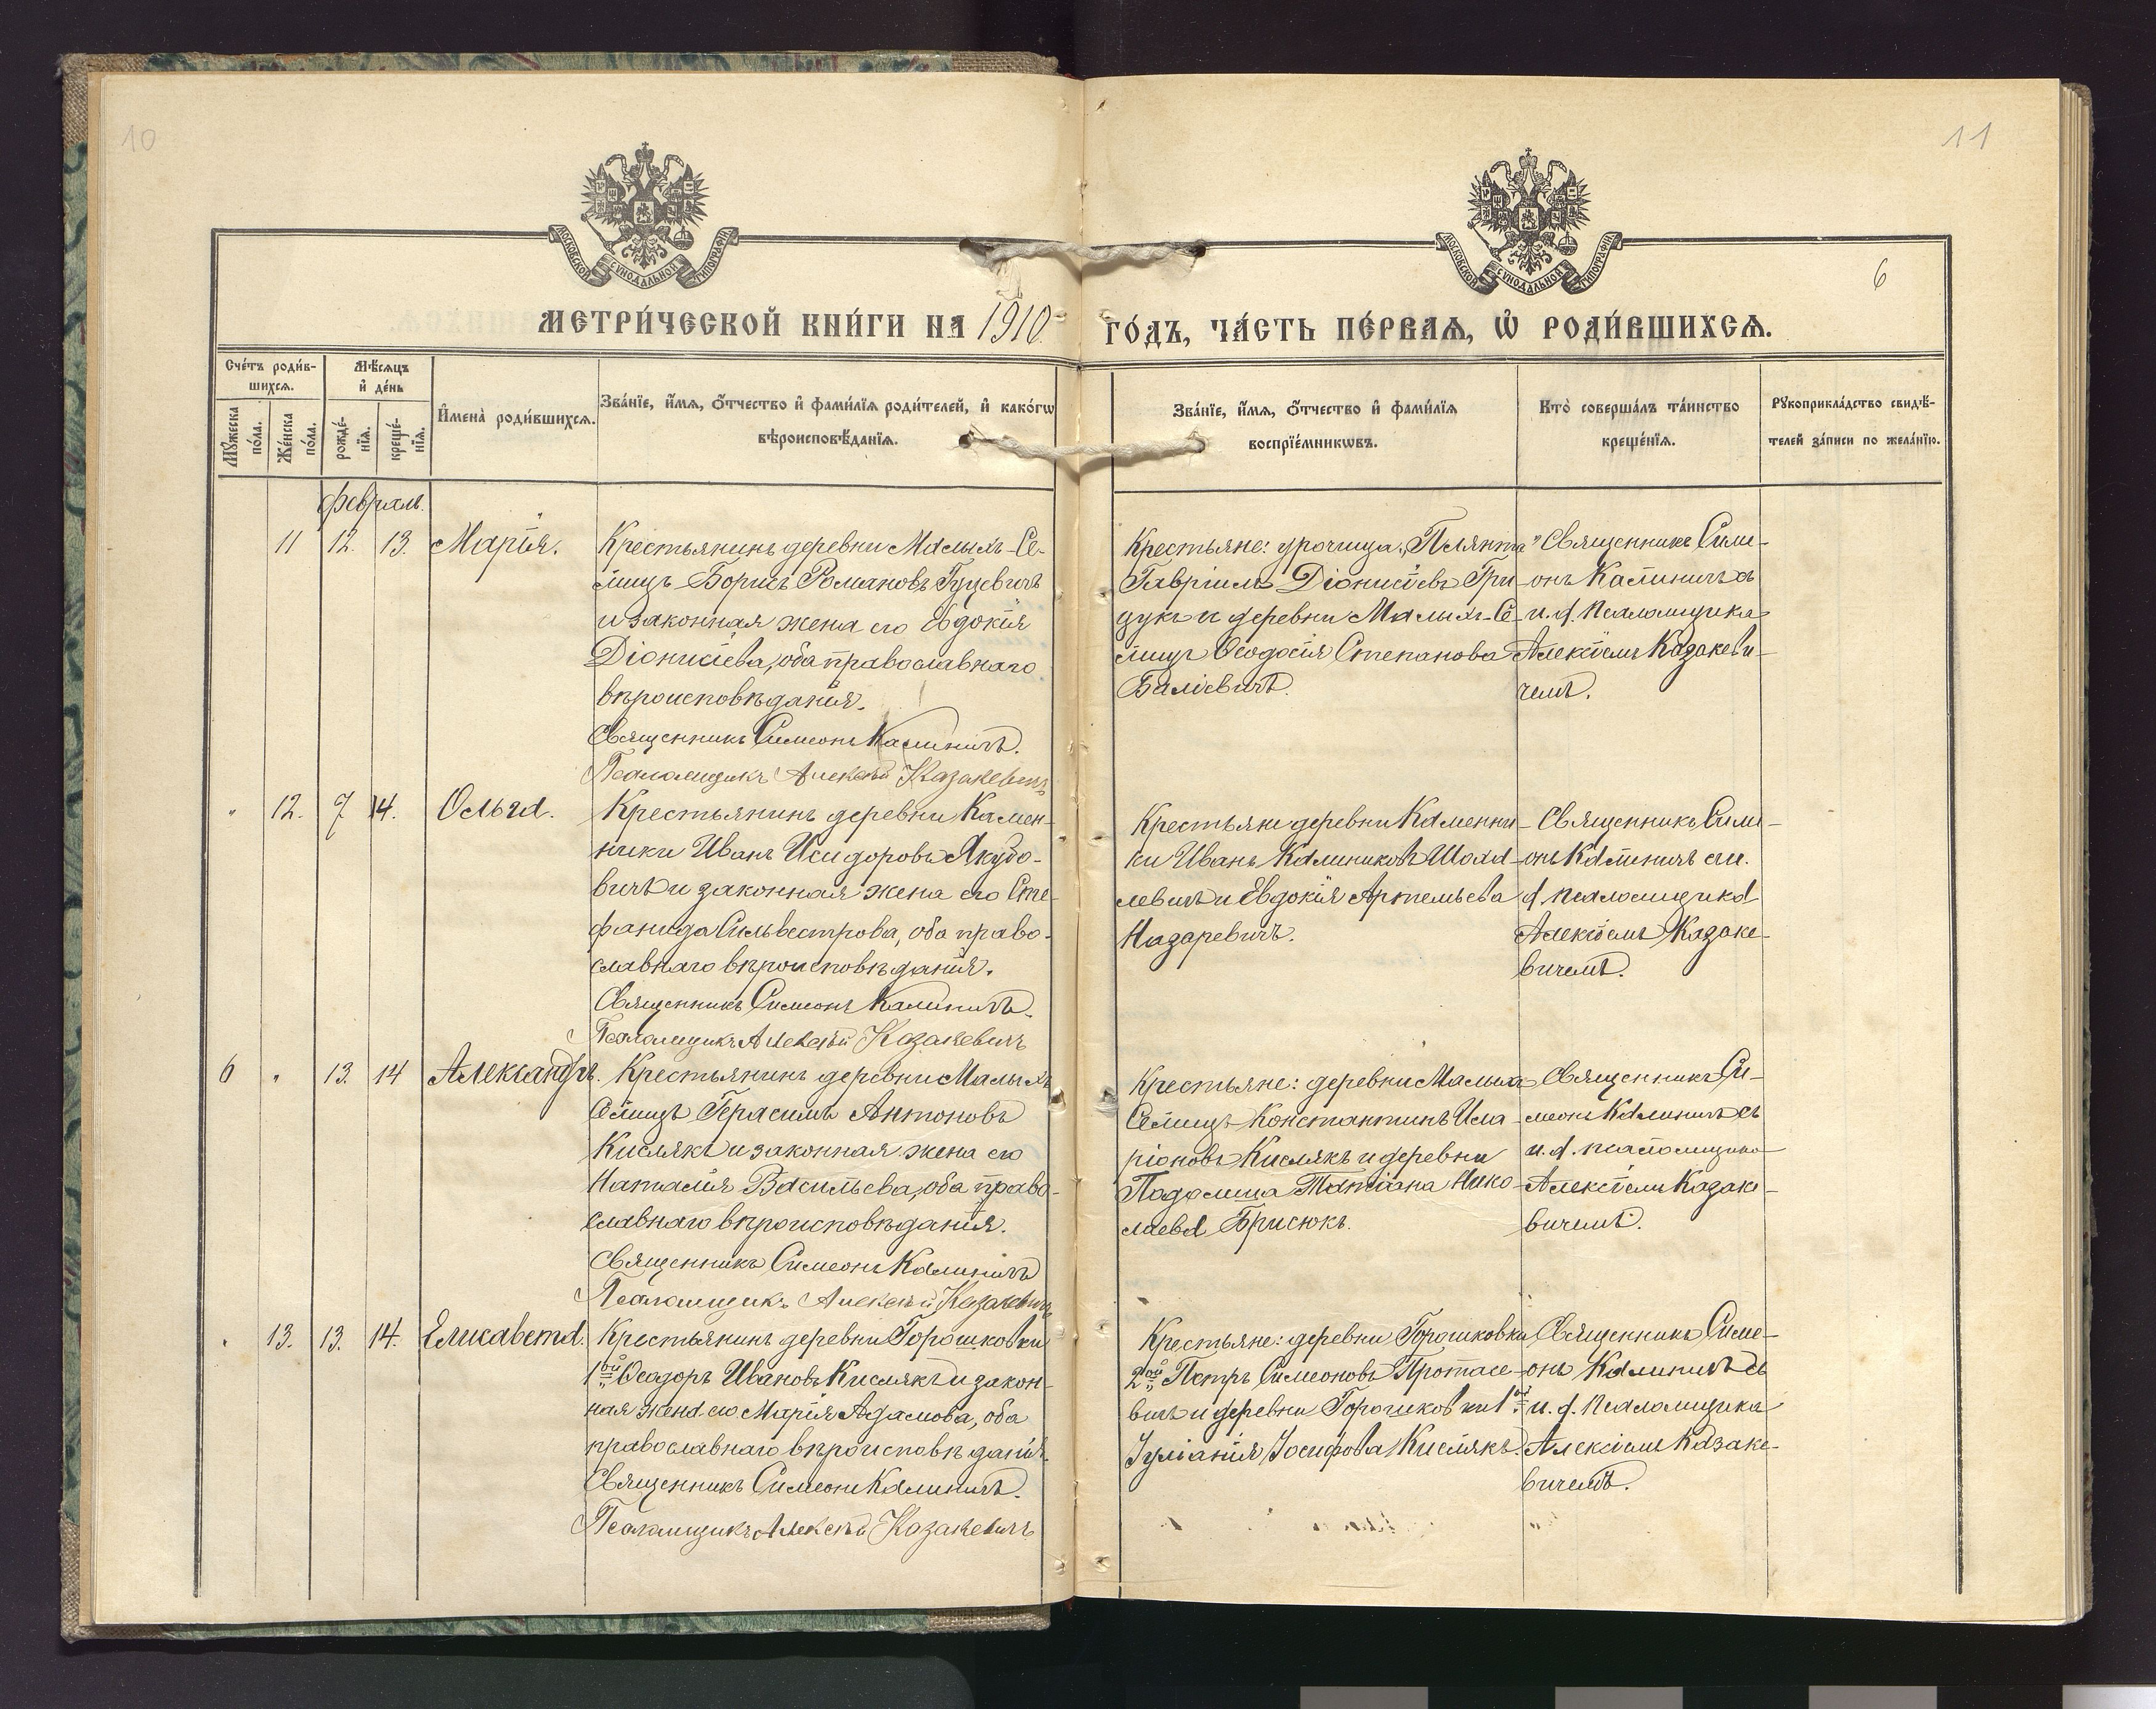 10
11
МОСКОВСКОЙ СѴНОДАЛЬНОЙ ТИПОГРАФІИ.
МОСКОВСКОЙ СѴНОДАЛЬНОЙ ТИПОГРАФІИ.
6
МЕТРИ́ЧЕСКОЙ КНИ́ГИ НА 1910
ГО́ДЪ, ЧА́СТЬ ПЕ́РВАѦ, Ѡ҆ РОДИ́ВШИХСѦ.
Сче́тъ роди́в-
шихсѧ.
Мѣ́сѧцъ
и҆ де́нь
Мꙋ́жеска
по́ла.
Же́нска
по́ла.
рожде́-
нїѧ.
креще́-
нїѧ.
И҆мена̀ роди́вшихсѧ.
Зва́нїе, и҆́мѧ, ѻ҆́тчество и҆ фами́лїѧ роди́телей, и҆ како́гѡ
вѣроисповѣ́данїѧ.
Зва́нїе, и҆́мѧ, ѻ҆́тчество и҆ фами́лїѧ
воспрїе́мникѡвъ.
Кто̀ соверша́лъ та́инство
креще́нїѧ.
Рꙋкоприкла́дство свидѣ́-
телей за́писи по жела́нїю.
Февраль.
11 12. 13. Марія.
Крестьянинъ деревни Малыхъ-Се-
лищъ Борисъ Романовъ Гуцевичъ
и законная жена его Евдокія
Діонисіева, оба православнаго
вѣроисповѣданія.
Священникъ Симеонъ Калиничъ.
Псаломщикъ Алексѣй Казакевичъ
Крестьяне: урочища „Плянта"
Гавріилъ Діонисіевъ Гри-
цукъ и деревни Малыхъ-Се-
лищъ Ѳеодосія Степанова
Балісвичъ.
Священникъ Симе-
онъ Калиничъ съ
и. д. псаломщика
Алексіемъ Казакеви-
чемъ.
" 12. 7. 14. Ольга.
Крестьянинъ деревни Камен-
ники Иванъ Исидоровъ Якубо-
вичъ и законная жена его Сте-
фанида Сильвестрова, оба право-
славнаго вѣроисповѣданія.
Священникъ Симеонъ Калиничъ.
Псаломщикъ Алексѣй Казакевичъ
Крестьяне деревни Каменни-
ки Иванъ Калиниковъ
левичъ и Евдокія Артемьева
Назаревичъ.
Священникъ Симе-
онъ Калиничъ съ и.
д. псаломщика
Алексіемъ Казаке-
вичемъ.
6 " 13. 14 Александръ.
Крестьянинъ деревни Малыхъ
Селищъ Герасимъ Антоновъ
Кислякъ и законная жена его
Наталія Васильева, оба право-
славнаго вѣроисповѣданія.
Священникъ Симеонъ Калиничъ
Псаломщикъ Алексѣй Казакевичъ
Крестьяне: деревни Малыхъ
Селищъ Константинъ Ила-
ріоновъ Кислякъ и деревни
Татіана Нико-
лаева Брисюкъ.
Священникъ Си-
меонъ Калиничъ съ
и. д. псаломщика
Алексіемъ Казаке-
вичемъ.
" 13. 13. 14. Елисавета.
Крестьянинъ деревни Горошковки
1ой Ѳеодоръ Ивановъ Кислякъ и закон-
ная жена его Марія Адамова, оба
православнаго вѣроисповѣданія.
Священникъ Симеонъ Калиничъ.
Псаломщикъ Алексѣй Казакевичъ
Крестьяне: деревни Горошковки
2ой Петръ Симеоновъ Протасе-
вичъ и деревни Горошковки 1ой
Іуліанія Іосифова Кислякъ.
Священникъ Симе-
онъ Калиничъ съ
и. д. псаломщика
Алексіемъ Казаке-
вичемъ.